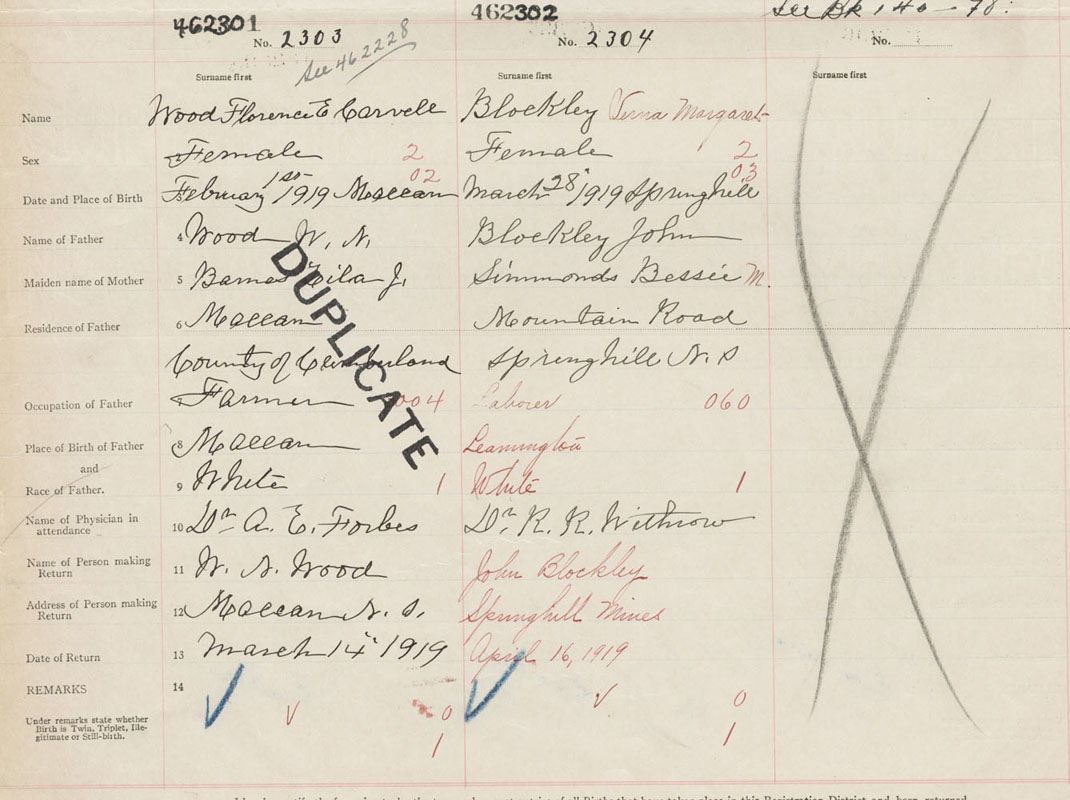 462301
462302
See Bk 140 - 78.
No. 2303
No. 2304
No.
See 462228
Surname first
Surname first
Surname first
Name
Wood Florence E Carvell
Blockley Verna Margaret
Sex
Female 2
Female 2
02
03
Date and Place of Birth
February 1st 1919 Maccan
March 28" 1919 Springhill
Name of Father
4 Wood W. N.
Blockley John
Maiden name of Mother
5 Barnes J.
Simmonds Bessie M.
Residence of Father
6 Maccan
Mountain Road
County of Cumberland
Springhill N. S
DUPLICATE
Occupation of Father
Farmer 004
Laborer 060
Place of Birth of Father
8 Maccan
Leamington
and
Race of Father.
9 White 1
White 1
Name of Physician in
attendance
10 Dr A. E. Forbes
Dr. R. R. Withrow
Name of Person making
Return
11 W. N. Wood
John Blockley
Address of Person making
Return
12 Maccan N. S.
Springhill Mines
Date of Return
13 March 14" 1919
April 16, 1919
REMARKS
14
Under remarks state whether
Birth is Twin, Triplet, Ille-
gitimate or Still-birth.
0
0
1
1